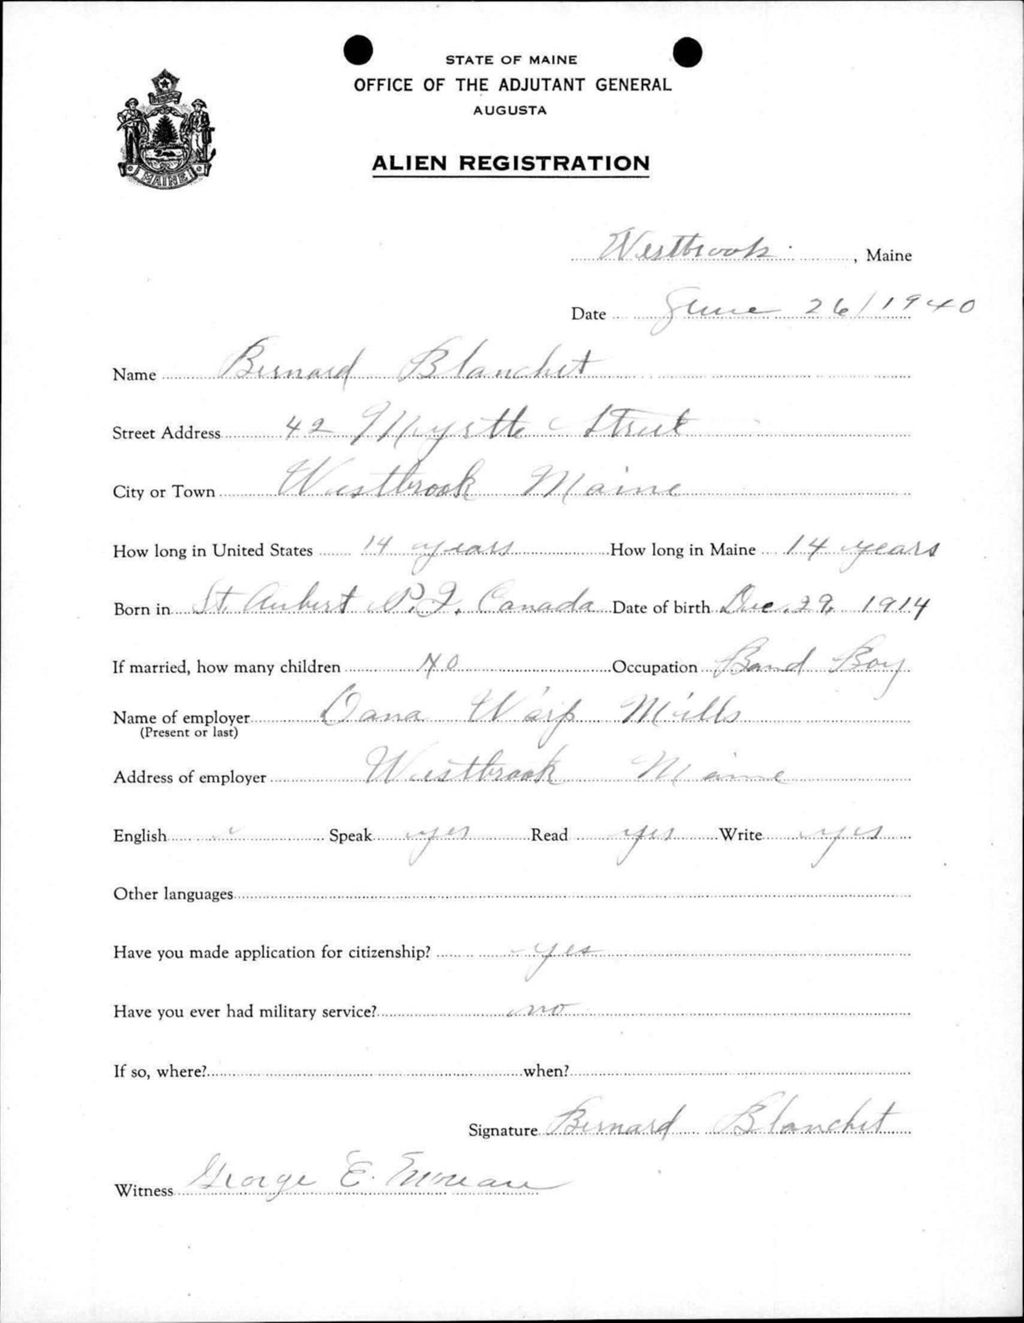 STATE OF MAINE
OFFICE OF THE ADJUTANT GENERAL
AUGUSTA
ALIEN REGISTRATION
MAINE
Westbrook, Maine
Date June 26/1940
Name Bernard Blanchet
Street Address 42 Myrtle Street
City or Town Westbrook Maine
How long in United States 14 years How long in Maine 14 years
Born in St. Aubert P.Q. Canada Date of birth Dec. 29, 1914
If married, how many children NO Occupation Band Boy
Name of employer Dana Warp Mills
(Present or last)
Address of employer Westbrook Maine
English Speak yes Read yes Write yes
Other languages
Have you made application for citizenship? yes
Have you ever had military service? no
If so, where? when?
Signature Bernard Blanchet
Witness George E.